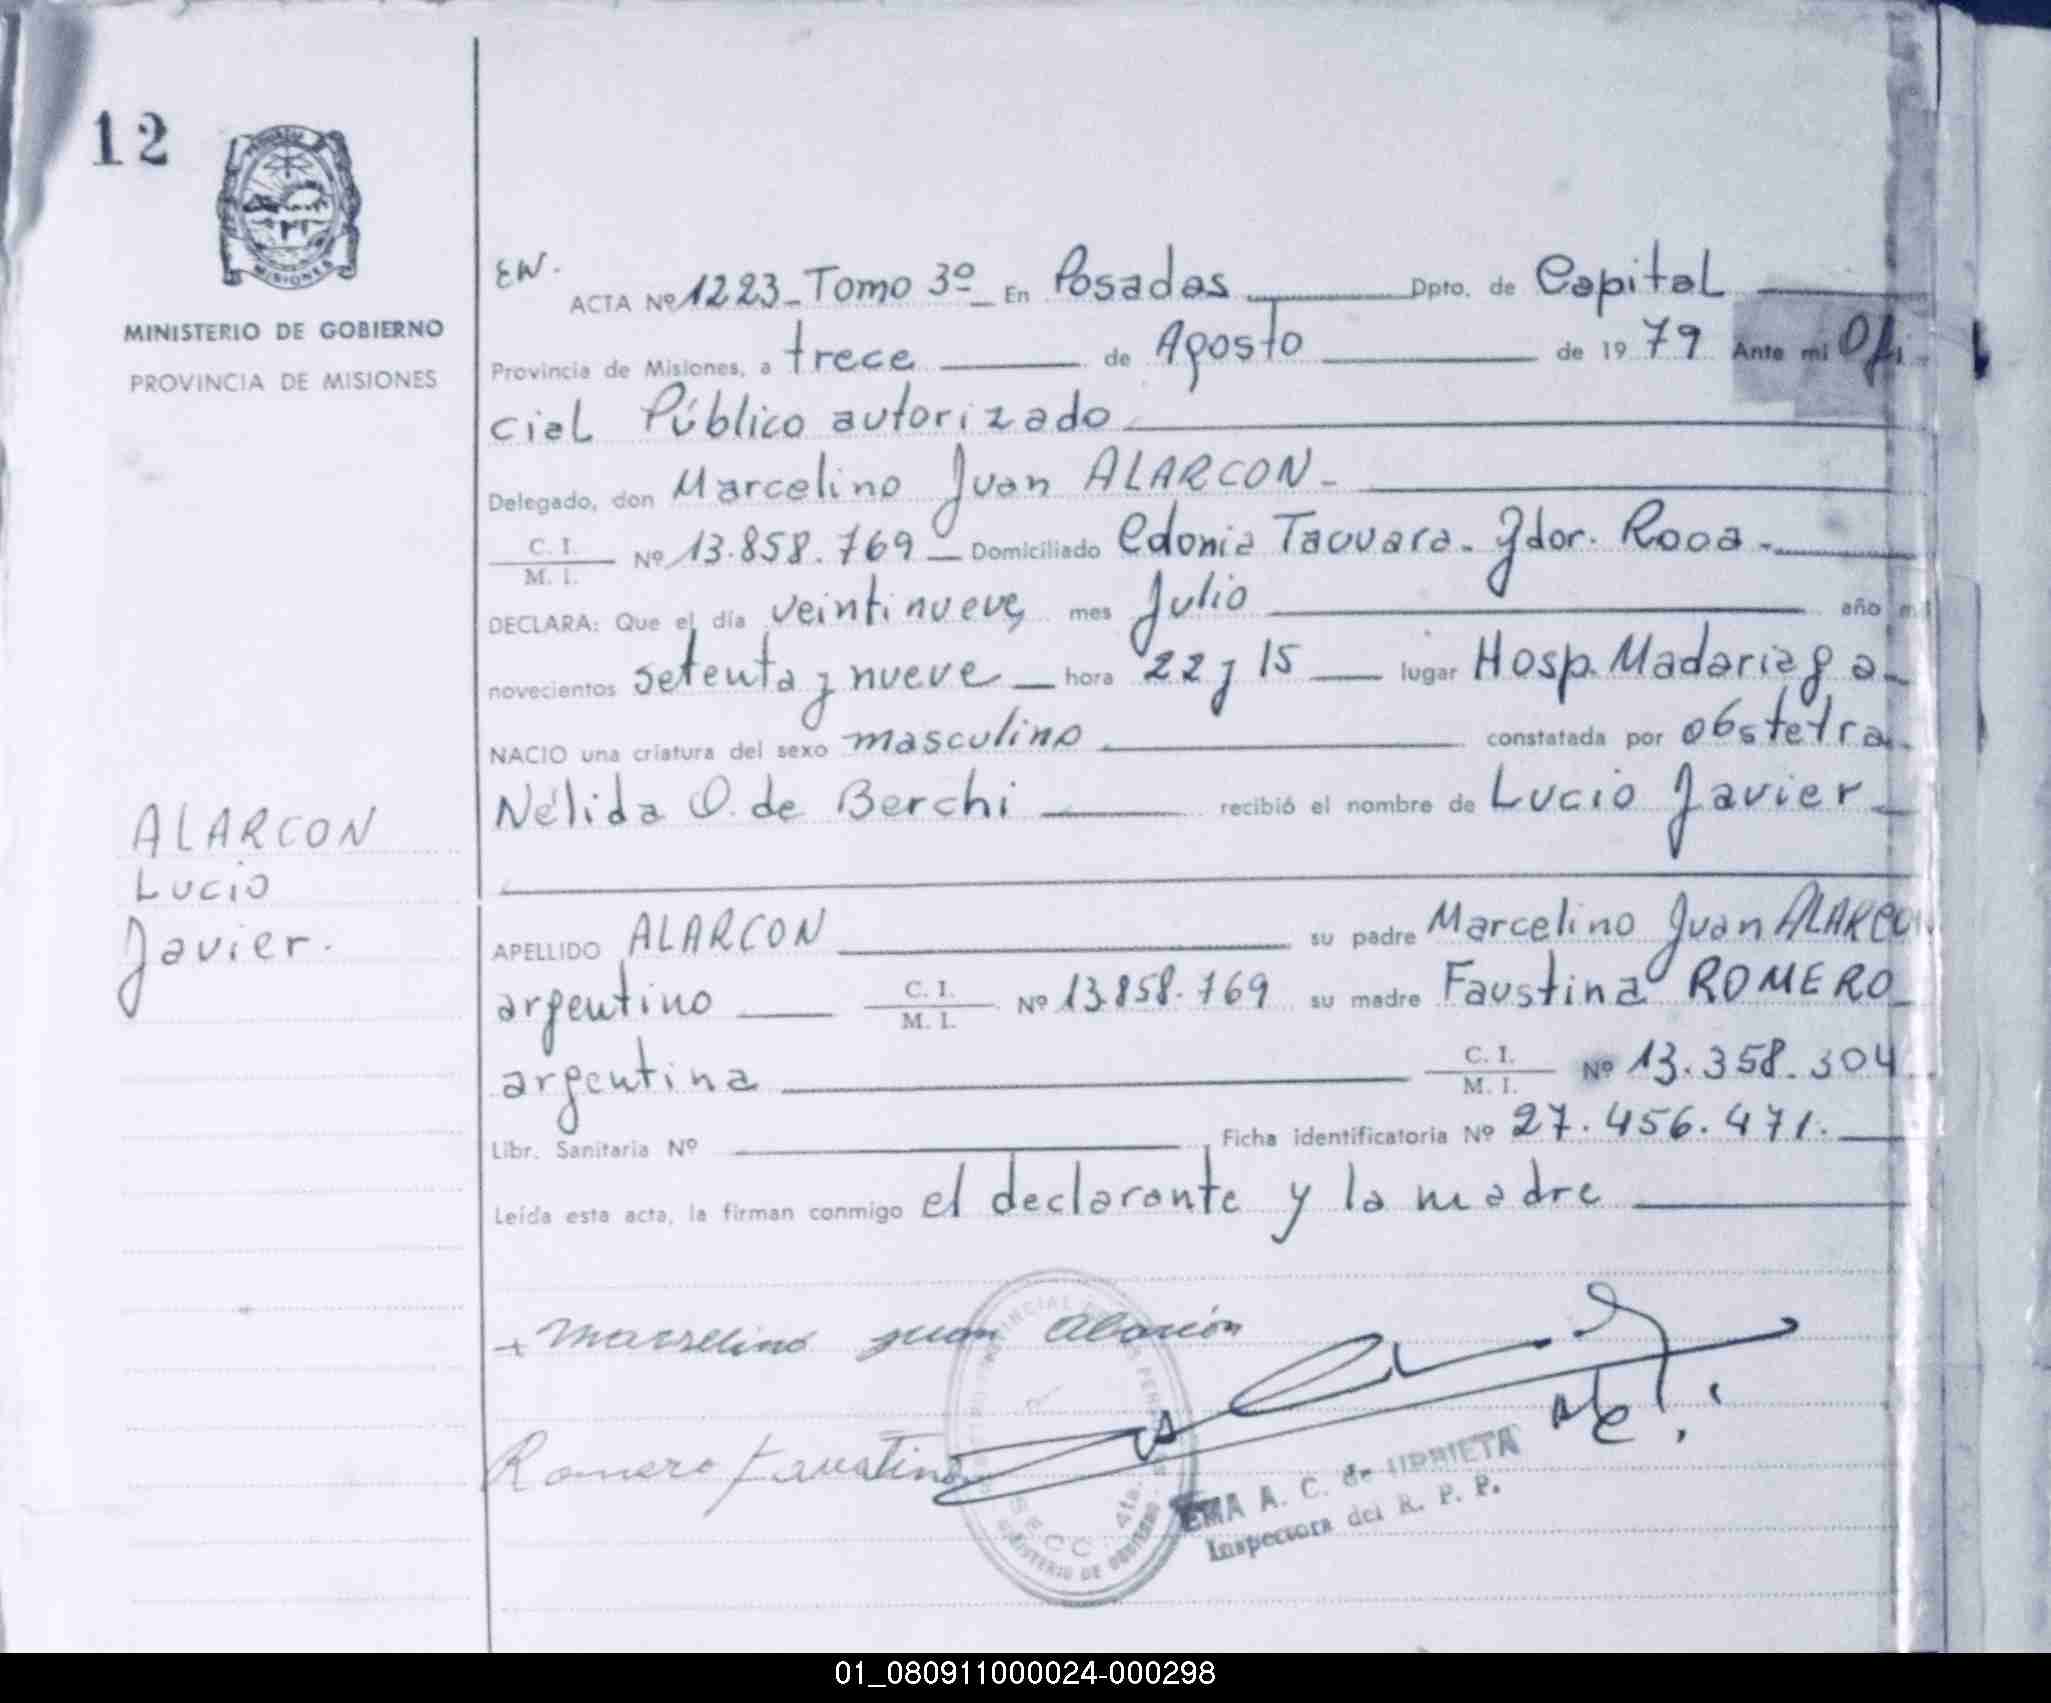 12
MINISTERIO DE GOBIERNO
PROVINCIA DE MISIONES
EW.
ACTA Nº 1223_Tomo 3º En Posadas Dpto. de Capital
Provincia de Misiones, a trece de Agosto de 1979 Ante mi Ofi
cial Público autorizado
Delegado, don Marcelino Juan ALARCON
C. I.
M. I. Nº 13.858.769 Domiciliado Colonia Tacuara. Gdor. Roca
DECLARA: Que el día veintinueve mes Julio año mil
novecientos setenta y nueve hora 22 y 15 lugar Hosp. Madariaga
NACIO una criatura del sexo masculino constatada por obstetra
Nélida O. de Berchi recibió el nombre de Lucio Javier
ALARCON
Lucio
Javier.
APELLIDO ALARCON su padre Marcelino Juan ALARCON
argentino C. I.
M. I. Nº 13.858.769 su madre Faustina ROMERO
argentina C. I.
M. I. Nº 13.358.304
Libr. Sanitaria Nº Ficha identificatoria Nº 27.456.471.
Leída esta acta, la firman conmigo el declarante y la madre
Marselino Juan Alarcón
Romero Faustina
SECC. 4ta.
MINISTERIO DE GOBIERNO
EMA A. C. de URRIETA
Inspectora del R. P. P.
01_080911000024-000298